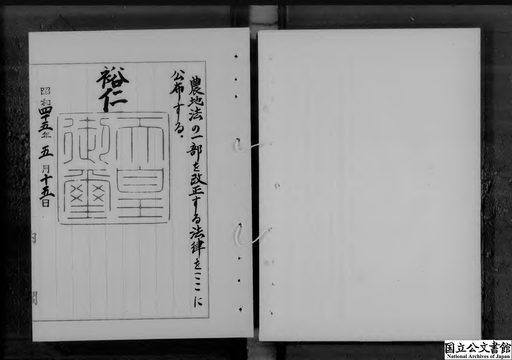 農地法の一部を改正する法律をここに
公布する。
裕仁
天皇
御璽
昭和四十五年五月十五日
内閣
国立公文書館
National Archives of Japan